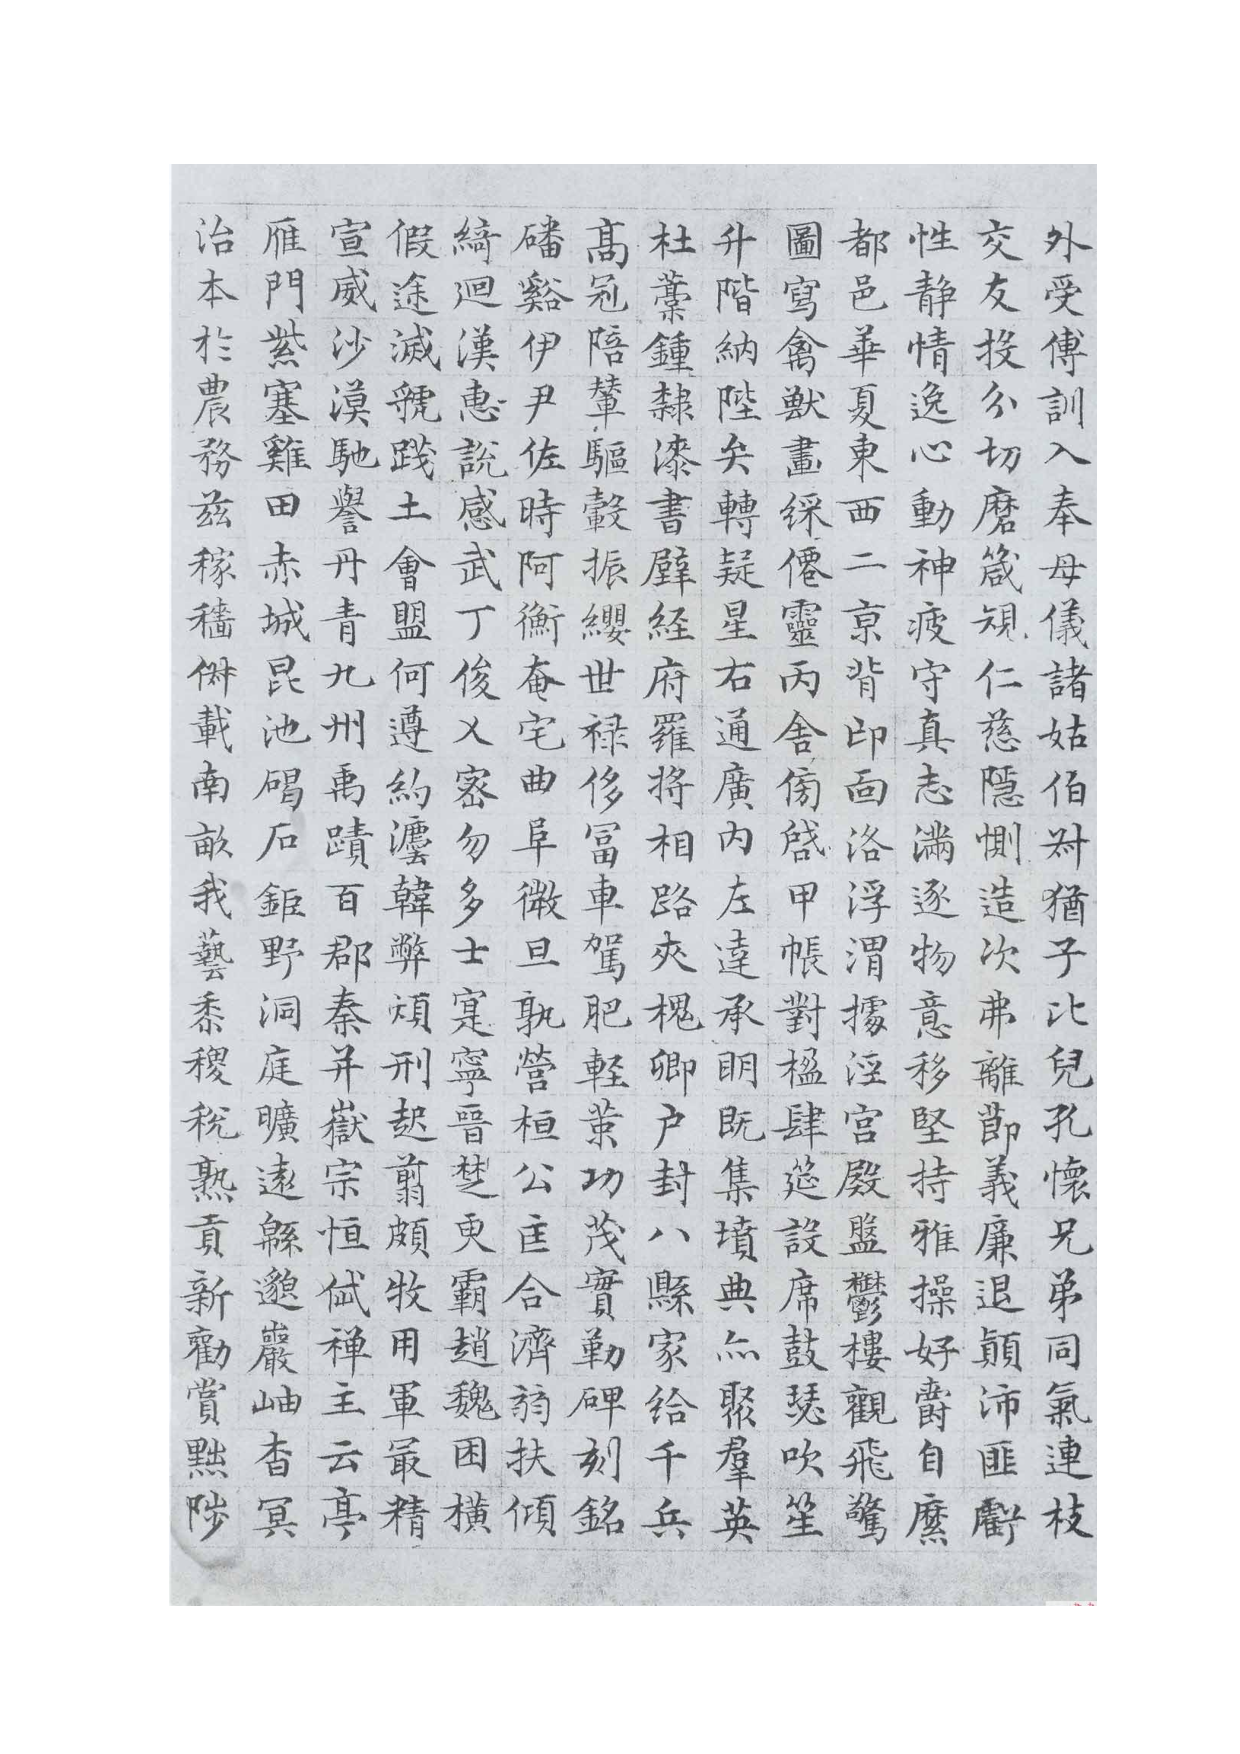 外受傅訓入奉母儀諸姑伯叔猶子比兒孔懷兄弟同氣連枝
交友投分切磨箴規仁慈隱惻造次弗離節義廉退顛沛匪虧
性静情逸心動神疲守真志滿逐物意移堅持雅操好爵自縻
都邑華夏東西二京背邙面洛浮渭據涇宫殿盤鬱樓觀飛驚
圖寫禽獸畫綵僊靈丙舍傍啓甲帳對楹肆筵設席鼓瑟吹笙
升階納陛弁轉疑星右通廣内左達承明既集墳典亦聚羣英
杜藁鍾隸漆書壁経府羅將相路夾槐卿户封八縣家給千兵
髙冠陪輦驅轂振纓世禄侈冨車駕肥軽策功茂實勒碑刻銘
磻谿伊尹佐時阿衡奄宅曲阜微旦孰營桓公匡合濟弱扶傾
綺迴漢惠說感武丁俊乂密勿多士寔寧晉楚更霸趙魏困横
假途滅虢踐土會盟何遵約灋韓弊煩刑起翦頗牧用軍最精
宣威沙漠馳譽丹青九州禹蹟百郡秦并嶽宗恒岱禅主云亭
雁門紫塞雞田赤城昆池碣石鉅野洞庭曠遠緜邈巖岫杳冥
治本於農務兹稼穡俶載南畝我藝黍稷稅熟貢新勸賞黜陟